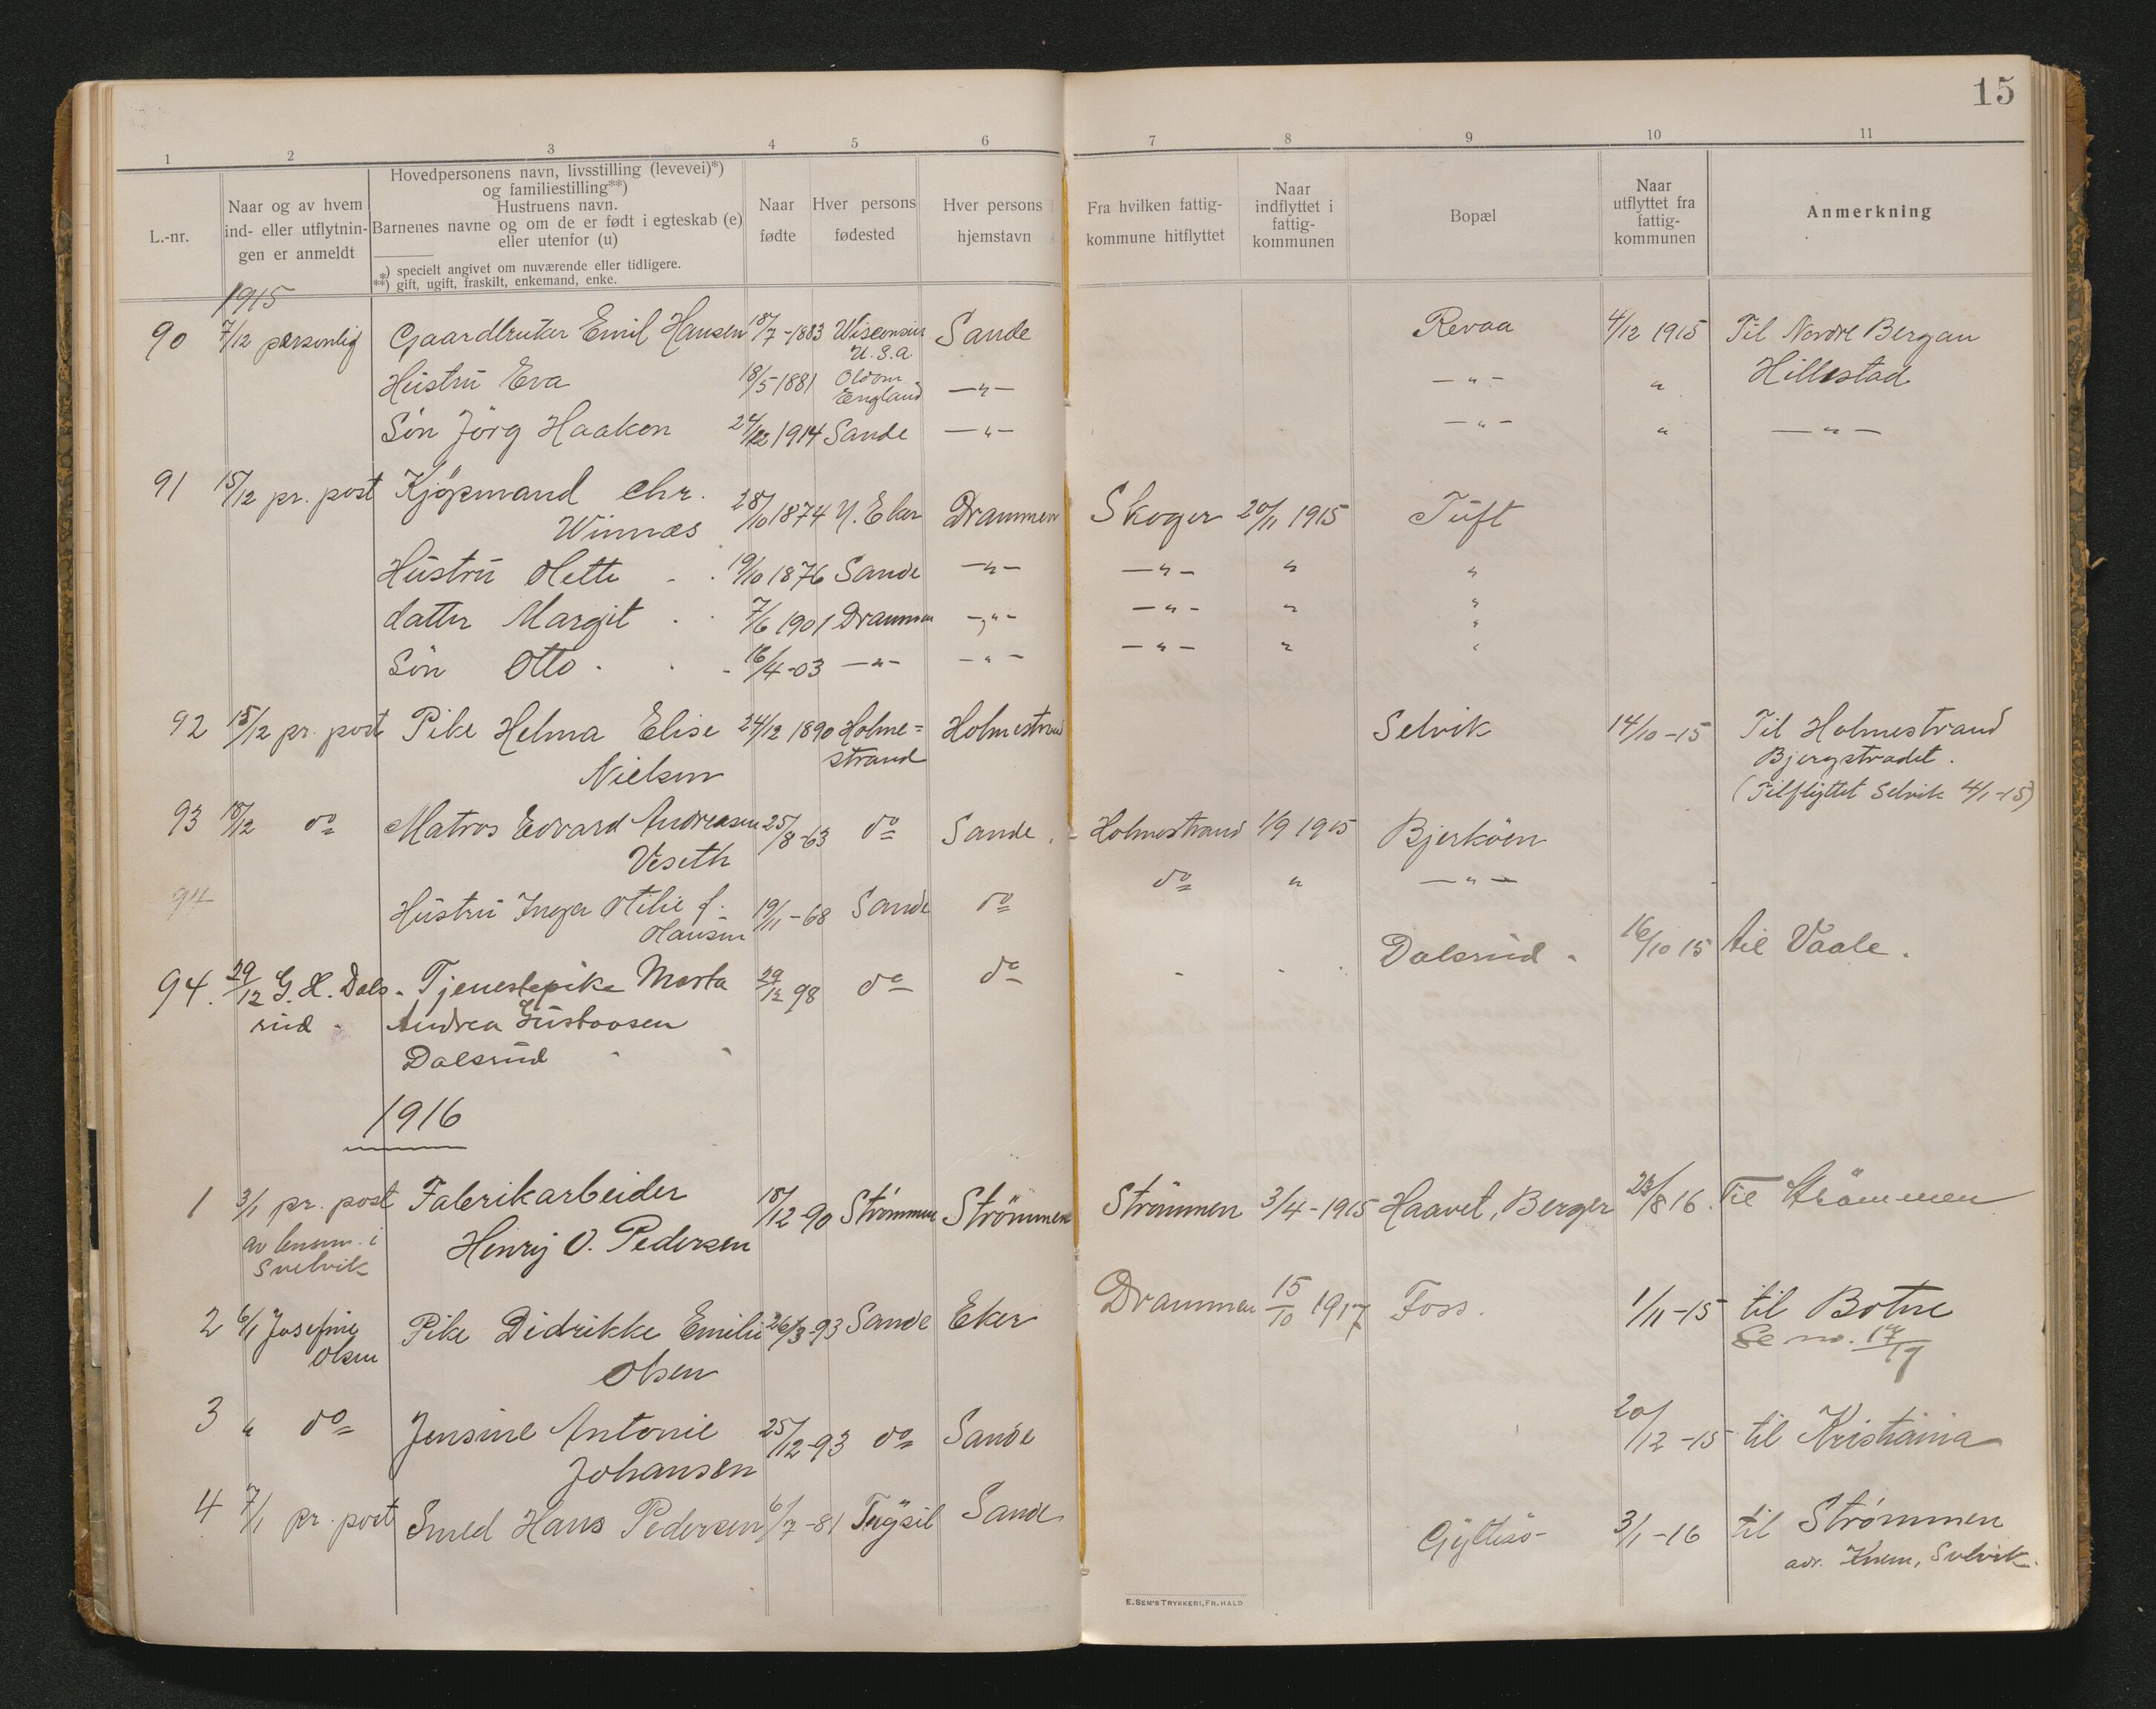 15
1 2 3 4 5 6 7 8 9 10 11
L.-nr.
Naar og av hvem
ind- eller utflytnin-
gen er anmeldt
Hovedpersonens navn, livsstilling (levevei)*)
og familiestilling**)
Hustruens navn.
Barnenes navne og om de er født i egteskab (e)
eller utenfor (u)
*) specielt angivet om nuværende eller tidligere.
**) gift, ugift, fraskilt, enkemand, enke.
Naar
fødte
Hver persons
fødested
Hver persons
hjemstavn
Fra hvilken fattig-
kommune hitflyttet
Naar
indflyttet i
fattig-
kommunen
Bopæl
Naar
utflyttet fra
fattig-
kommunen
Anmerkning
1915
90 7/12 personlig Gaardbruker Emil Hansen 18/7-1883 Wisconsin Sande Revaa 4/12 1915 Til Nordre Bergan
U.S.a. Hillestad
Hustru Eva 18/5 1881 England —"— —"— "
Søn Jörg Haakon 24/12 1914 Sande —"— —"— " —"—
91 15/12 pr. post Kjöpmand Chr.
Winnæs 28/10 1874 N. Eker Drammen Skoger 20/11 1915 Tuft
Hustru Olette 19/10 1876 Sande —"— —"— " "
datter Margit 7/6 1901 Drammen —"— —"— " "
Søn Otto 16/4-03 —"— —"— —"— " "
92 15/12 pr. post Pike Helma Elise 24/12 1890 Holme= Holmestrand Selvik 14/10-15 Til Holmestrand
Nielsen strand Bjergstrædet.
(Tilflyttet Selvik 4/1-15)
93 18/12 do Matros Edvard Andreasen 25/8-63 do Sande. Holmestrand 1/9 1915 Bjerköen
Veseth
94 Hustru Inga Otilie f. 19/11-68 Sande do do " —"—
Olausen
94. 29/12 G. H. Dals- Tjenestepike Marta 29/12 98 do do Dalsrud 16/10 15 til Vaale.
rud Andrea Gustavsen
Dalsrud
1916
1 3/1 pr. post Fabrikarbeider 18/12-90 Strömmen Strömmen Strömmen 3/4-1915 Haavet, Berger 23/8 16. Til Strömmen
av lensm. i Henrij O. Pedersen
Svelvik
2 6/1 Josefine Pike Didrikke Emilie 26/3-93 Sande Eker Drammen 15/10 1917 Foss. 1/11-15 til Botne
Olsen Olsen Se no. 17/19
3 " do Jensine Antonie 25/12-93 do Sande 20/12-15 til Kristiania
Johansen
4 7/1 pr. post Smed Hans Pedersen 6/7-81 Trysil Sande 3/1-16 til Strømmen
adr. Svelvik.
E. SEM'S TRYKKERI, FR.HALD